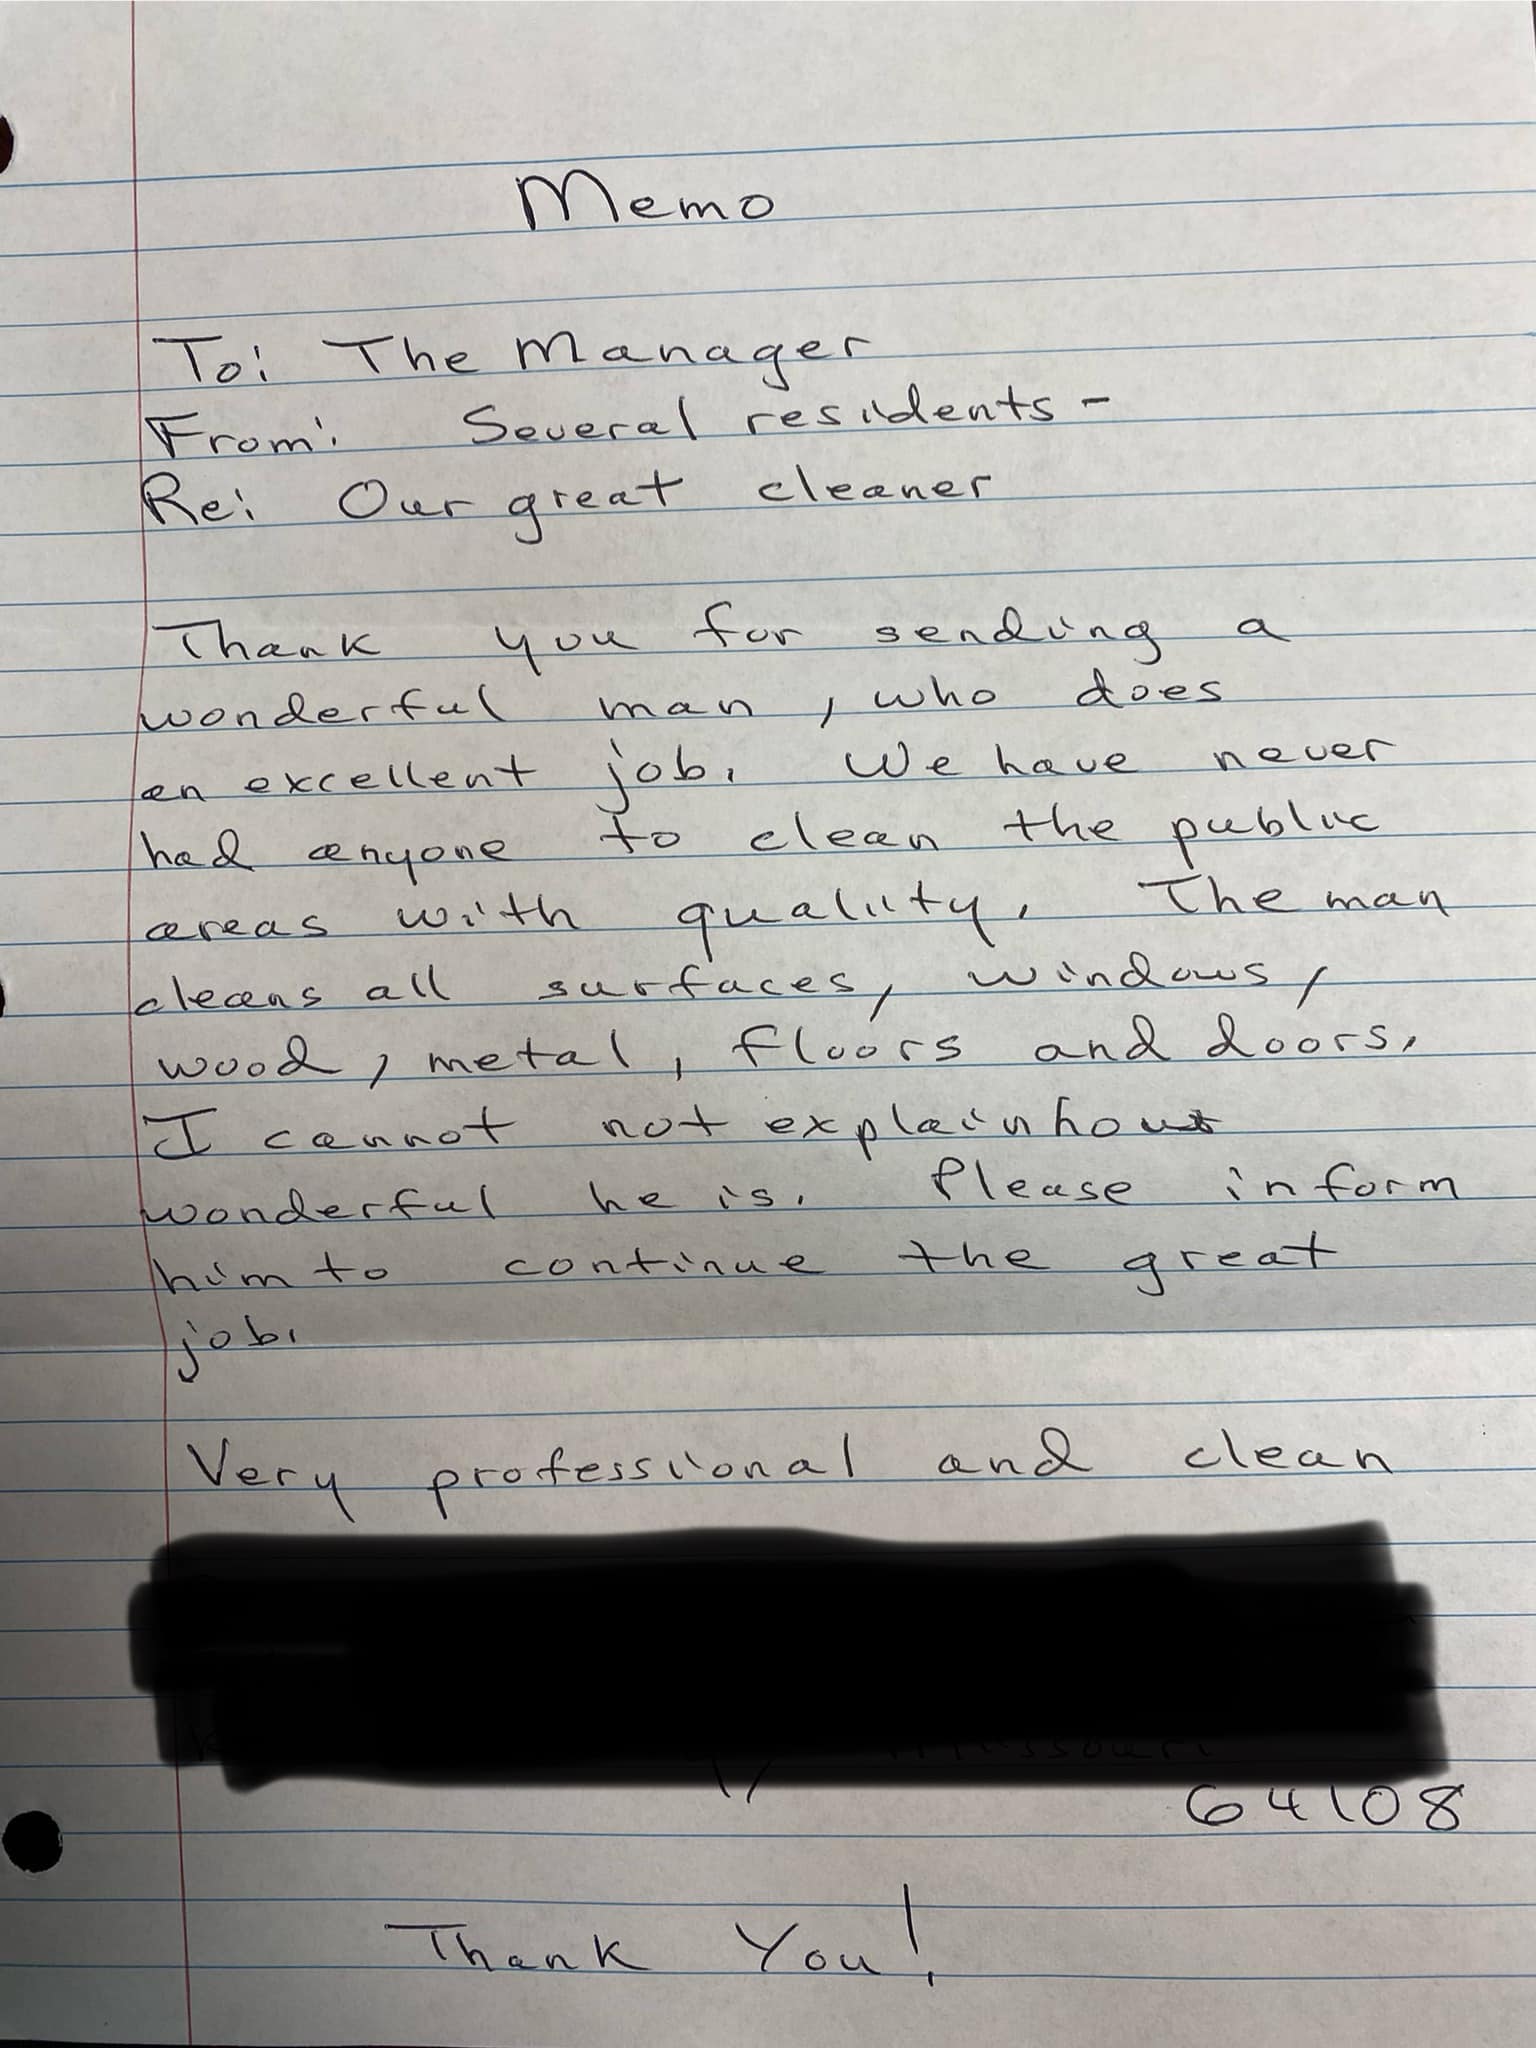 Memo
To: The Manager
From: Several residents -
Re: Our great cleaner
Thank you for sending a
wonderful man, who does
an excellent job. We have never
had anyone to clean the public
areas with quality. The man
cleans all surfaces, windows,
wood, metal, floors and doors.
I cannot not explain how
wonderful he is. Please inform
him to continue the great
job.
Very professional and clean
64108
Thank You!